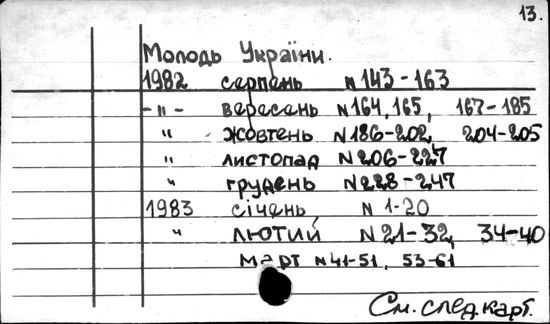 13.
Молодь України.
1982 серпень N 143-163
-"- вересень N 164, 165, 167-185
" жовтень N 186-202, 204-205
" листопад N 206-227
" грудень N 228-247
1983 січень N 1-20
" лютий N 21-32, 34-40
март N 41-51, 53-61
См. след. карт.